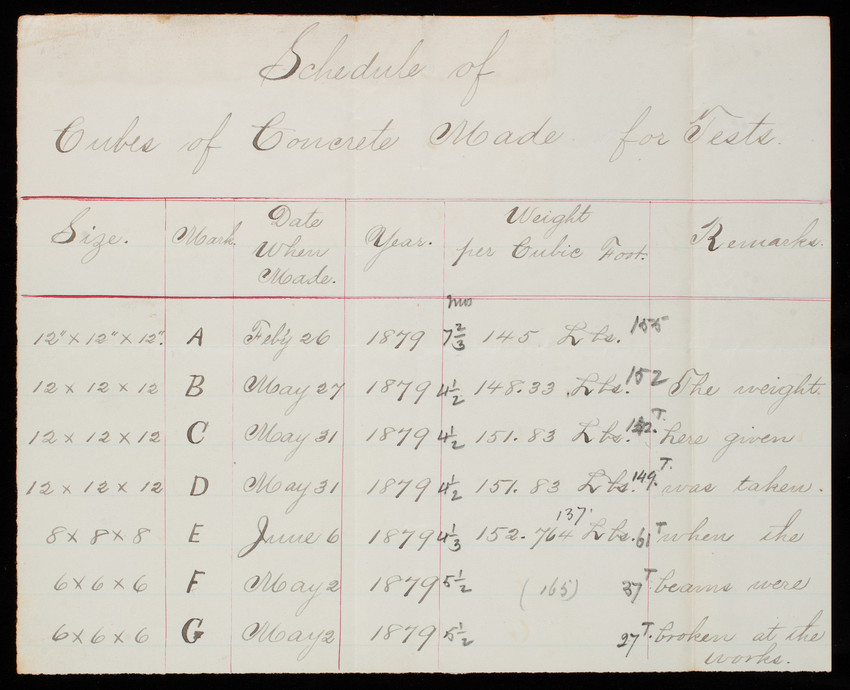 Schedule of
Cubes of Concrete Made for Tests.
Size. Mark. Date When Made. Year. Weight per Cubic Foot. Remarks.
mo
12" x 12" x 12". A Feby 26 1879 7 2/3 145 Lbs. 155
12 x 12 x 12 B May 27 1879 4 1/2 148.33 Lbs. 152 The weight
12 x 12 x 12 C May 31 1879 4 1/2 151.83 Lbs. 152. T. here given
12 x 12 x 12 D May 31 1879 4 1/2 151.83 Lbs. 149. T. was taken.
137.
8 x 8 x 8 E June 6 1879 4 1/3 152.764 Lbs. 61 T when the
6 x 6 x 6 F May 2 1879 5 1/2 (165) 37 T beams were
6 x 6 x 6 G May 2 1879 5 1/2 27 T. broken at the
works.